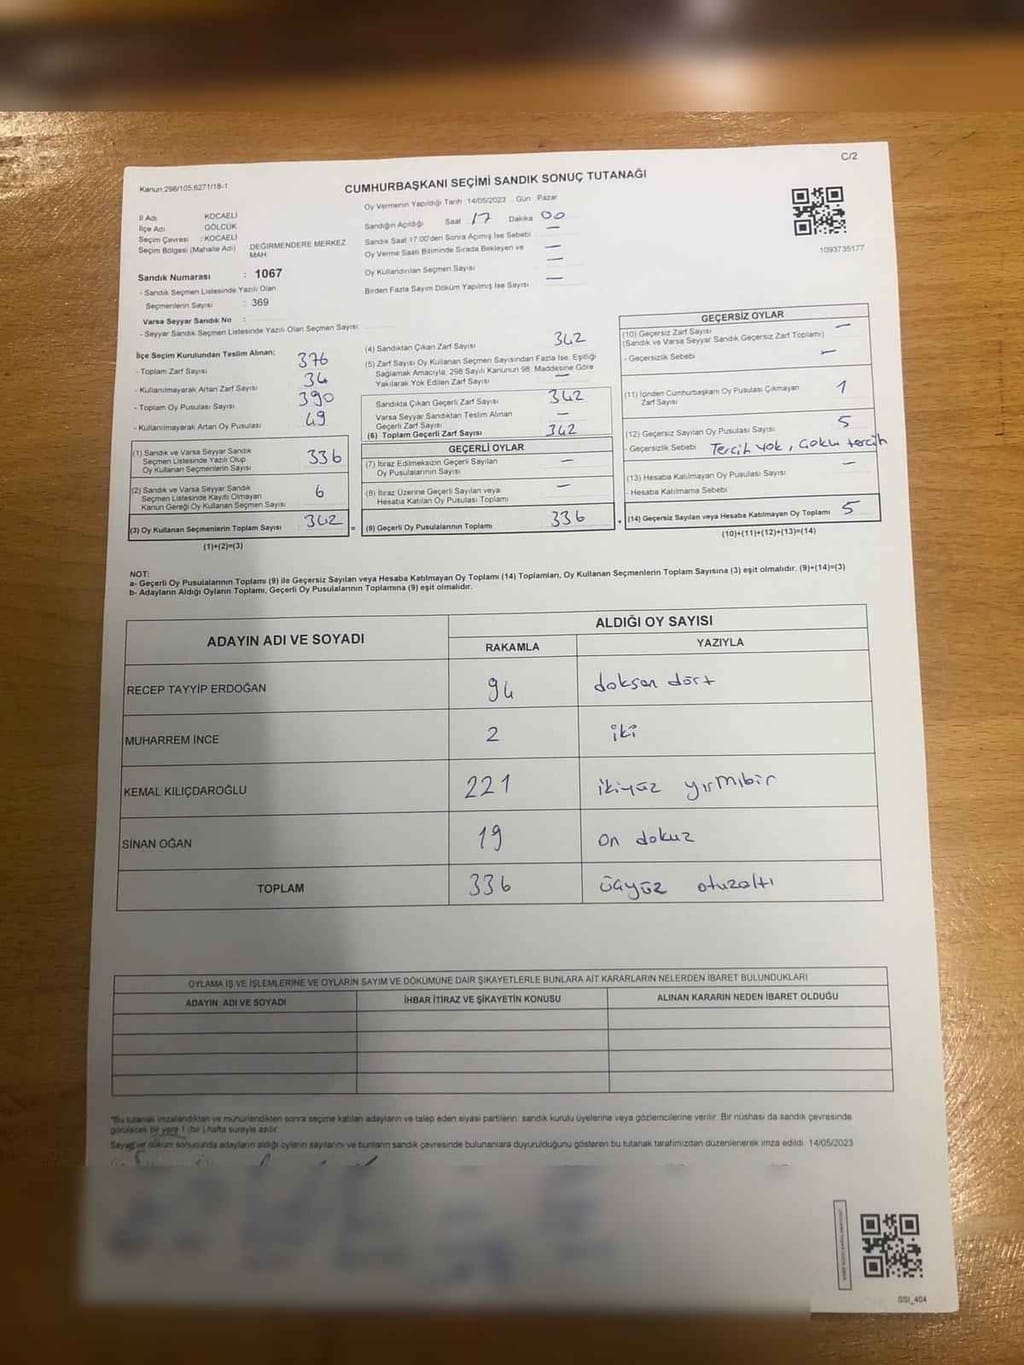 Kanun:298/105;6271/18-1
C/2
CUMHURBAŞKANI SEÇİMİ SANDIK SONUÇ TUTANAĞI
Oy Vermenin Yapıldığı Tarih 14/05/2023 Gün Pazar
İl Adı KOCAELİ
İlçe Adı GÖLCÜK
Seçim Çevresi : KOCAELİ
Seçim Bölgesi (Mahalle Adı) DEĞİRMENDERE MERKEZ MAH
Sandığın Açıldığı Saat 17 Dakika 00
Sandık Saat 17:00'den Sonra Açımış İse Sebebi —
Oy Verme Saati Bitiminde Sırada Bekleyen ve —
Oy Kullandırılan Seçmen Sayısı —
Birden Fazla Sayım Döküm Yapılmış İse Sayısı —
1093735177
Sandık Numarası : 1067
- Sandık Seçmen Listesinde Yazılı Olan
Seçmenlerin Sayısı : 369
Varsa Seyyar Sandık No :
- Seyyar Sandık Seçmen Listesinde Yazılı Olan Seçmen Sayısı:
İlçe Seçim Kurulundan Teslim Alınan;
- Toplam Zarf Sayısı 376
- Kullanılmayarak Artan Zarf Sayısı 34
- Toplam Oy Pusulası Sayısı 390
- Kullanılmayarak Artan Oy Pusulası 49
(1) Sandık ve Varsa Seyyar Sandık
Seçmen Listesinde Yazılı Olup
Oy Kullanan Seçmenlerin Sayısı 336
(2) Sandık ve Varsa Seyyar Sandık
Seçmen Listesinde Kayıtlı Olmayan
Kanun Gereği Oy Kullanan Seçmen Sayısı 6
(3) Oy Kullanan Seçmenlerin Toplam Sayısı 342 =
(1)+(2)=(3)
(4) Sandıktan Çıkan Zarf Sayısı 342
(5) Zarf Sayısı Oy Kullanan Seçmen Sayısından Fazla İse, Eşitliği
Sağlamak Amacıyla; 298 Sayılı Kanunun 98. Maddesine Göre
Yakılarak Yok Edilen Zarf Sayısı —
Sandıkta Çıkan Geçerli Zarf Sayısı 342
Varsa Seyyar Sandıktan Teslim Alınan
Geçerli Zarf Sayısı —
(6) Toplam Geçerli Zarf Sayısı 342
GEÇERLİ OYLAR
(7) İtiraz Edilmeksizin Geçerli Sayılan
Oy Pusulalarının Sayısı —
(8) İtiraz Üzerine Geçerli Sayılan veya
Hesaba Katılan Oy Pusulası Toplamı —
(9) Geçerli Oy Pusulalarının Toplamı 336 +
GEÇERSİZ OYLAR
(10) Geçersiz Zarf Sayısı —
(Sandık ve Varsa Seyyar Sandık Geçersiz Zarf Toplamı)
- Geçersizlik Sebebi —
(11) İçinden Cumhurbaşkanı Oy Pusulası Çıkmayan
Zarf Sayısı 1
(12) Geçersiz Sayılan Oy Pusulası Sayısı 5
- Geçersizlik Sebebi Tercih Yok, Çoklu tercih
(13) Hesaba Katılmayan Oy Pusulası Sayısı —
- Hesaba Katılmama Sebebi
(14) Geçersiz Sayılan veya Hesaba Katılmayan Oy Toplamı 5
(10)+(11)+(12)+(13)=(14)
NOT:
a- Geçerli Oy Pusulalarının Toplamı (9) ile Geçersiz Sayılan veya Hesaba Katılmayan Oy Toplamı (14) Toplamları, Oy Kullanan Seçmenlerin Toplam Sayısına (3) eşit olmalıdır. (9)+(14)=(3)
b- Adayların Aldığı Oyların Toplamı, Geçerli Oy Pusulalarının Toplamına (9) eşit olmalıdır.
ADAYIN ADI VE SOYADI ALDIĞI OY SAYISI
RAKAMLA YAZIYLA
RECEP TAYYİP ERDOĞAN 94 doksan dört
MUHARREM İNCE 2 iki
KEMAL KILIÇDAROĞLU 221 ikiyüz yirmibir
SİNAN OĞAN 19 on dokuz
TOPLAM 336 üçyüz otuzaltı
OYLAMA İŞ VE İŞLEMLERİNE VE OYLARIN SAYIM VE DÖKÜMÜNE DAİR ŞİKAYETLERLE BUNLARA AİT KARARLARIN NELERDEN İBARET BULUNDUKLARI
ADAYIN ADI VE SOYADI İHBAR İTİRAZ VE ŞİKAYETİN KONUSU ALINAN KARARIN NEDEN İBARET OLDUĞU
*Bu tutanak imzalandıktan ve mühürlendikten sonra seçime katılan adayların ve talep eden siyasi partilerin sandık kurulu üyelerine veya gözlemcilerine verilir. Bir nüshası da sandık çevresinde
görülecek bir yere 1 (bir) hafta süreyle asılır.
Sayım ve döküm sonucunda adayların aldığı oyların sayılarını ve bunların sandık çevresinde bulunanlara duyurulduğunu gösteren bu tutanak tarafımızdan düzenlenerek imza edildi. 14/05/2023
SSI_404